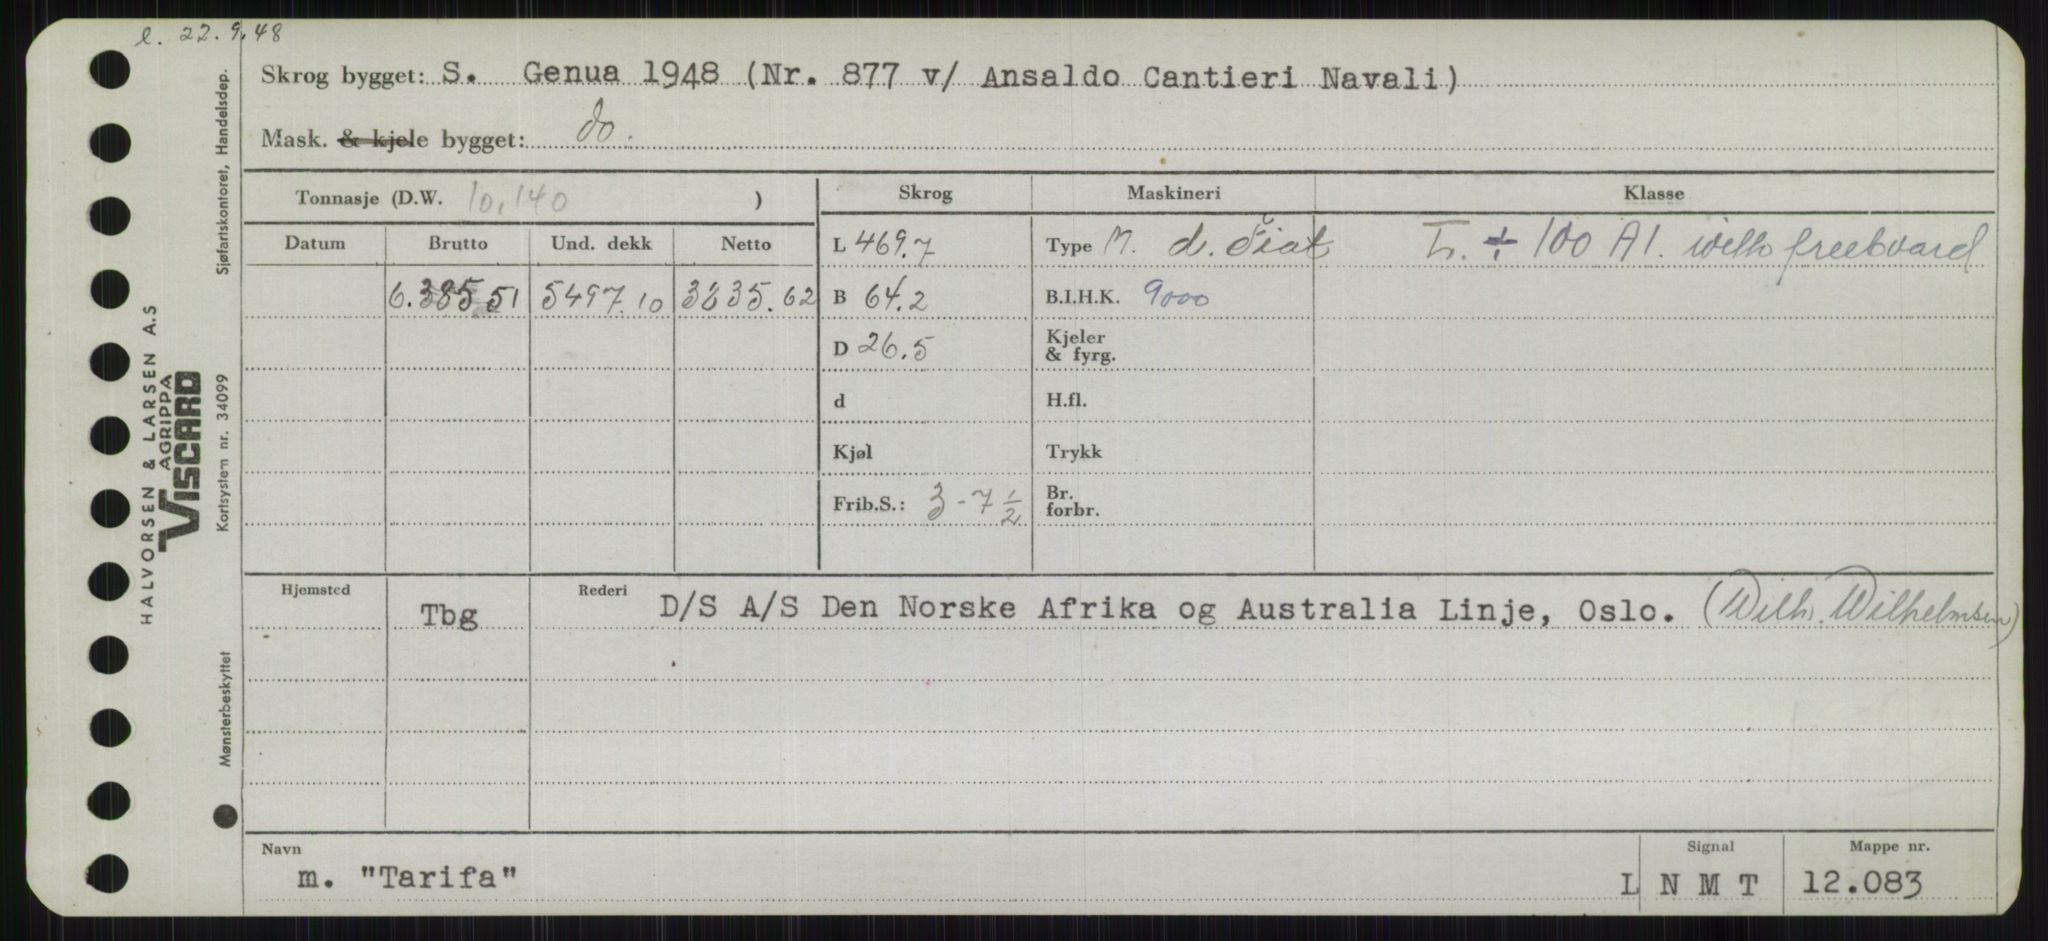 l. 22.9.48
Skrog bygget: S. Genua 1948 (Nr. 877 v/ Ansaldo Cantieri Navali)
Mask. & kjele bygget: do.
Tonnasje (D.W. 10,140 )
Skrog Maskineri Klasse
Datum Brutto Und. dekk Netto
L 469.7 Type M. d. Fiat L. + 100 A1. with freeboard
6.385.51 5497.10 3635.62
B 64.2 B.I.H.K. 9000
D 26.5 Kjeler
& fyrg.
d H.fl.
Kjøl Trykk
Frib.S.: 3-7½ Br.
forbr.
Hjemsted Rederi
Tbg D/S A/S Den Norske Afrika og Australia Linje, Oslo. (Wilh. Wilhelmsen)
Navn Signal Mappe nr.
m. "Tarifa" L N M T 12.083
Sjøfartskontoret, Handelsdep.
HALVORSEN & LARSEN A.S
AGRIPPA
VISCARD
Kortsystem nr. 34099
Mønsterbeskyttet